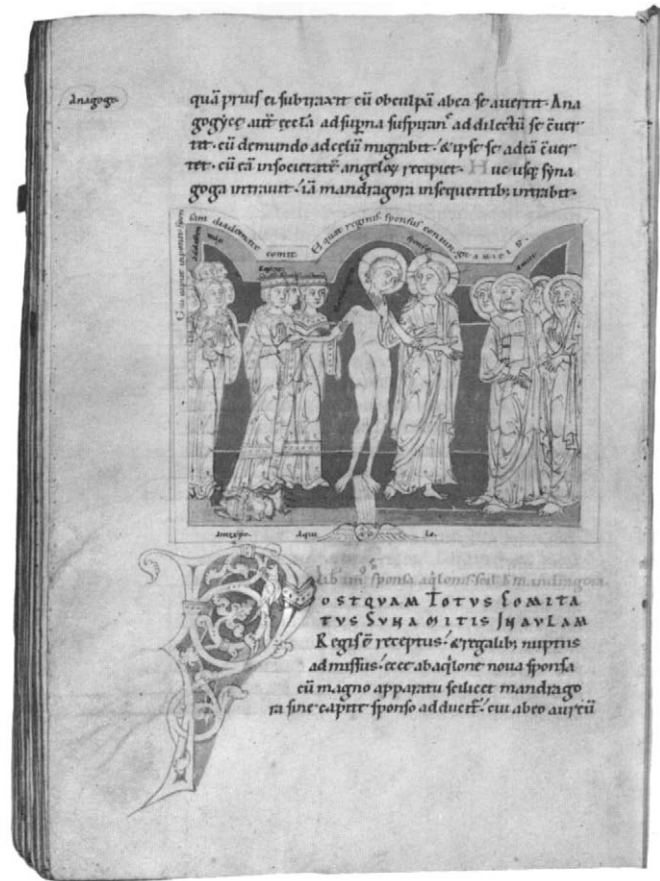 Anagoge.
quã prius ei subtraxit cũ ob culpã ab ea se avertit. Ana
gogyce aut̃ ęccła ad sup̃na suspiranˢ ad dilectũ se c̃ver
tit. cũ de mundo ad cęlũ migrabit. & ipse se ad eã c̃ver
tet. cũ eã in societatẽ angeloꝝ recipiet. Huc usqꝫ syna
goga intravit. iã mandragora in sequentibꝫ intrabit.
Cui caput imponit
sponsus coniungit
Et quar reginis
sponsa
Aqui lo.
lib iiiiᵒˢ sponsa aq̇lonis scił & mandragora
POSTQVAM TOTVS COMITA
TVS SVNAMITIS IN AVLAM
Regis ẽ receptus. & regalibꝫ nuptiis
admissus. ecce ab aq̇lone nova sponsa
cũ magno apparatu scilicet mandrago
ra sine capite sponso adducit̃. cui ab eo aureũ